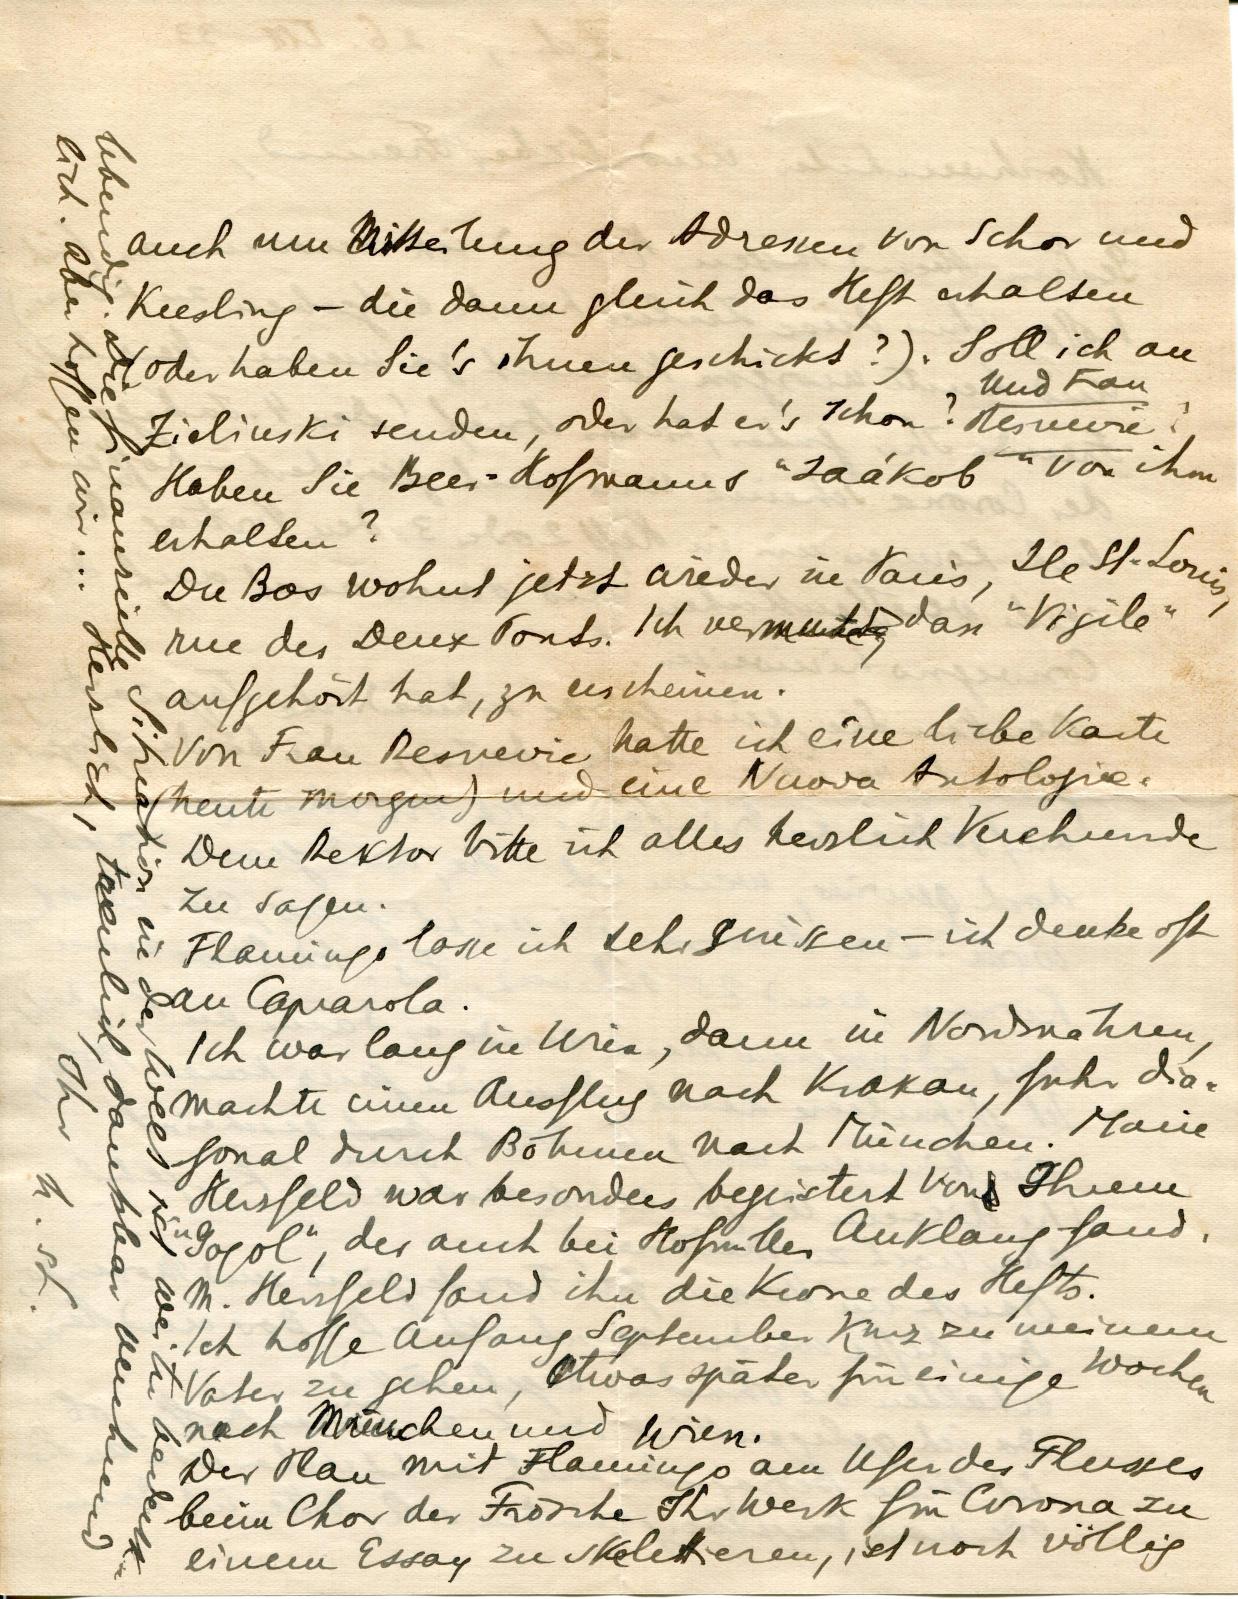 auch um Mitteilung der Adressen von Schor und
Keesling – die dann gleich das Heft erhalten
(oder haben Sie's ihnen geschickt?). Soll ich an
Zielinski senden, oder hat er's schon? und Frau Resnevic?
Haben Sie Beer-Hofmanns "Jaákob" von ihm
erhalten?
Du Bos wohnt jetzt wieder in Paris, Ile St-Louis,
rue des Deux Ponts. Ich vermute, dass "Vigile"
aufgehört hat, zu erscheinen.
Von Frau Resnevic hatte ich eine liebe Karte
(heute morgen) und eine Nuova Antologia.
Dem Rektor bitte ich alles herzlich Verehrende
zu sagen.
Flamingo lasse ich sehr grüssen – ich denke oft
an Caprarola.
Ich war lang in Wien, dann in Nordmähren,
machte einen Ausflug nach Krakau, fuhr dia-
gonal durch Böhmen nach München. Marie
Herzfeld war besonders begeistert von Ihrem
"Gogol", der auch bei Hofmiller Anklang fand.
M. Herzfeld fand ihn die Krone des Hefts.
Ich hoffe Anfang September kurz zu meinem
Vater zu gehen, etwas später für einige Wochen
nach München und Wien.
Der Plan mit Flamingo am Ufer des Flusses
beim Chor der Frösche Ihr Werk für Corona zu
einem Essay zu skelettieren, ist noch völlig
lebendig. Die finanzielle Situation in der Welt ist weiter bedenk-
lich. Aber hoffen wir... Herzlich, dankbar
Ihr
H. St.